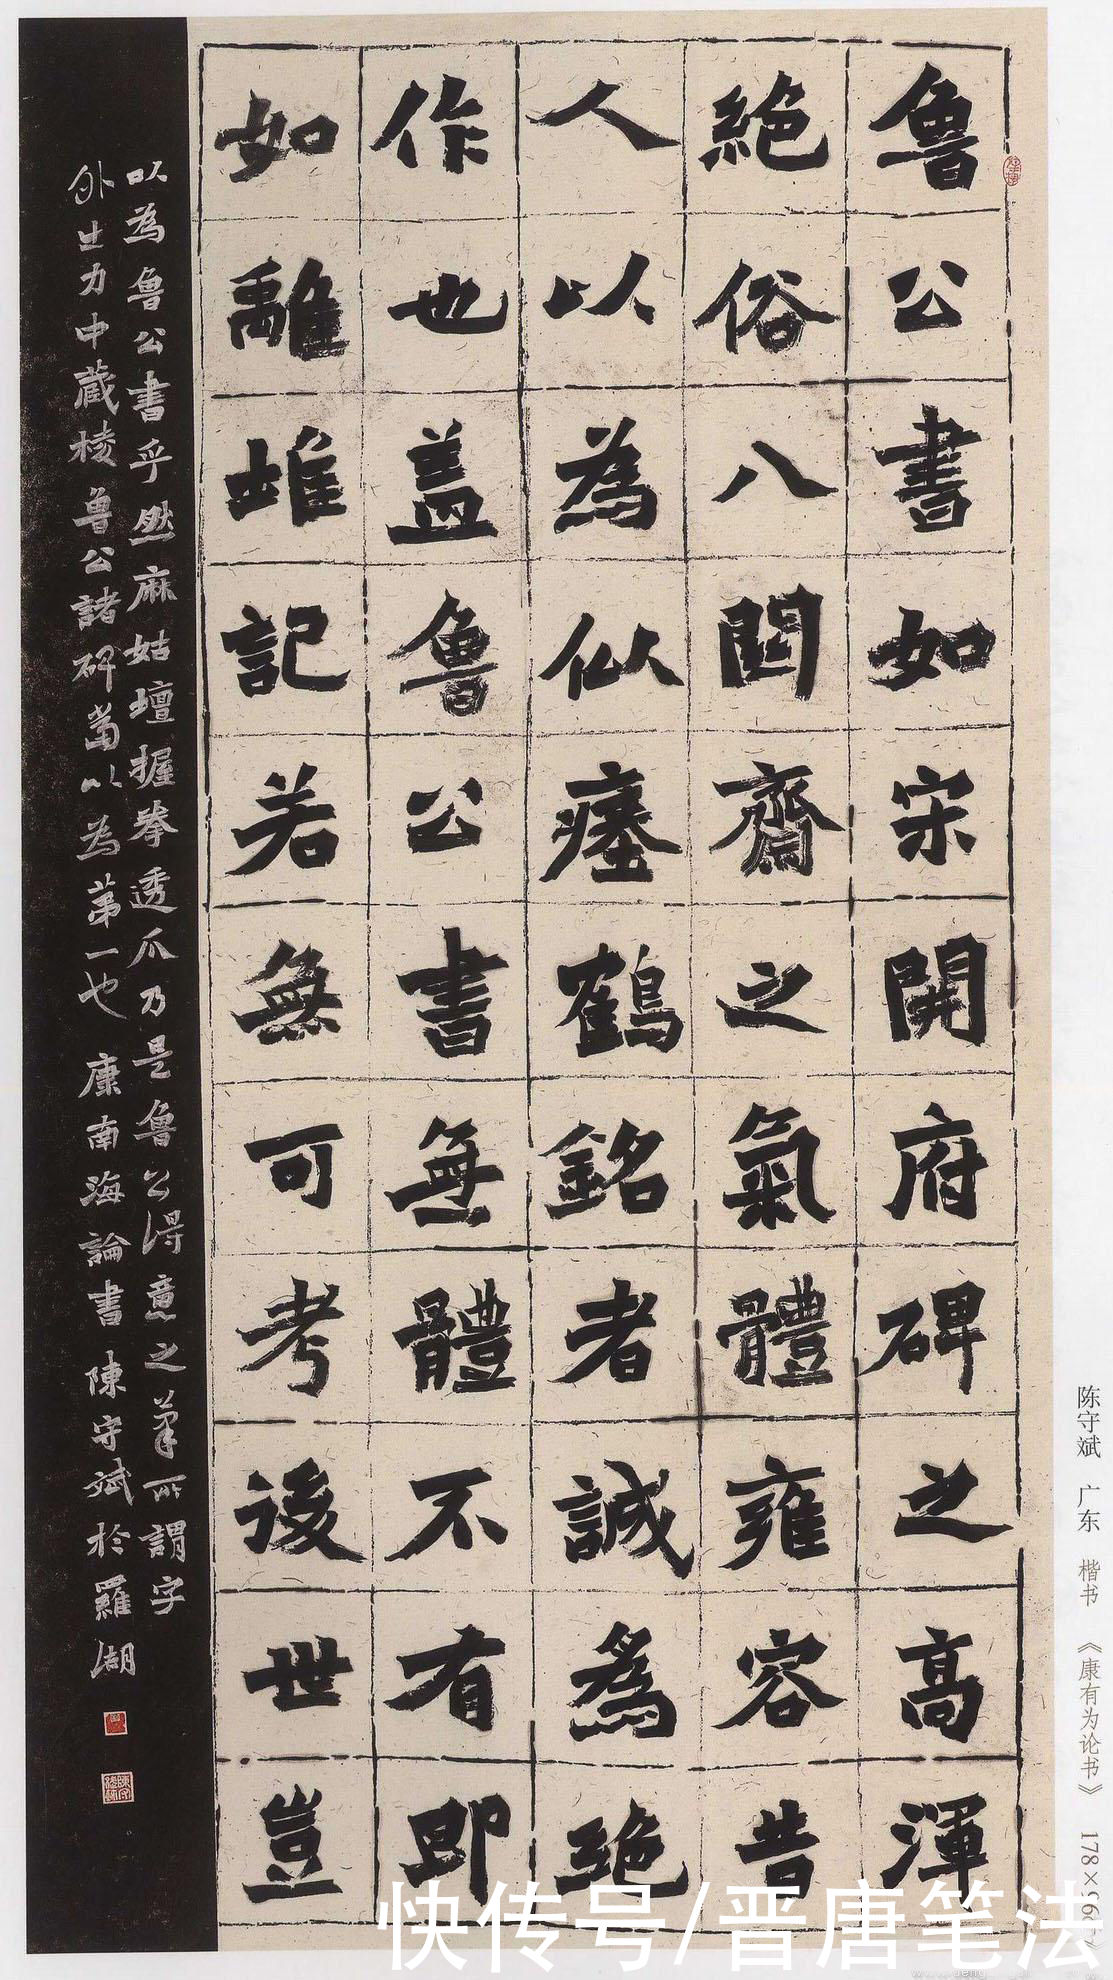 魯公書如宋開府碑之高渾
絕俗八関齋之氣體雍容昔
人以為似瘗鶴銘者誠為絕
作也盖魯公書無體不有即
如離堆記若無可考後世豈
以為魯公書乎然麻姑壇握拳透爪乃是魯公得意之筆所謂字
外出力中藏棱魯公諸碑當以為第一也 康南海論書 陳守斌於羅湖
陈守斌 广东 楷书 《康有为论书》 178×96
快传号/晋唐笔法